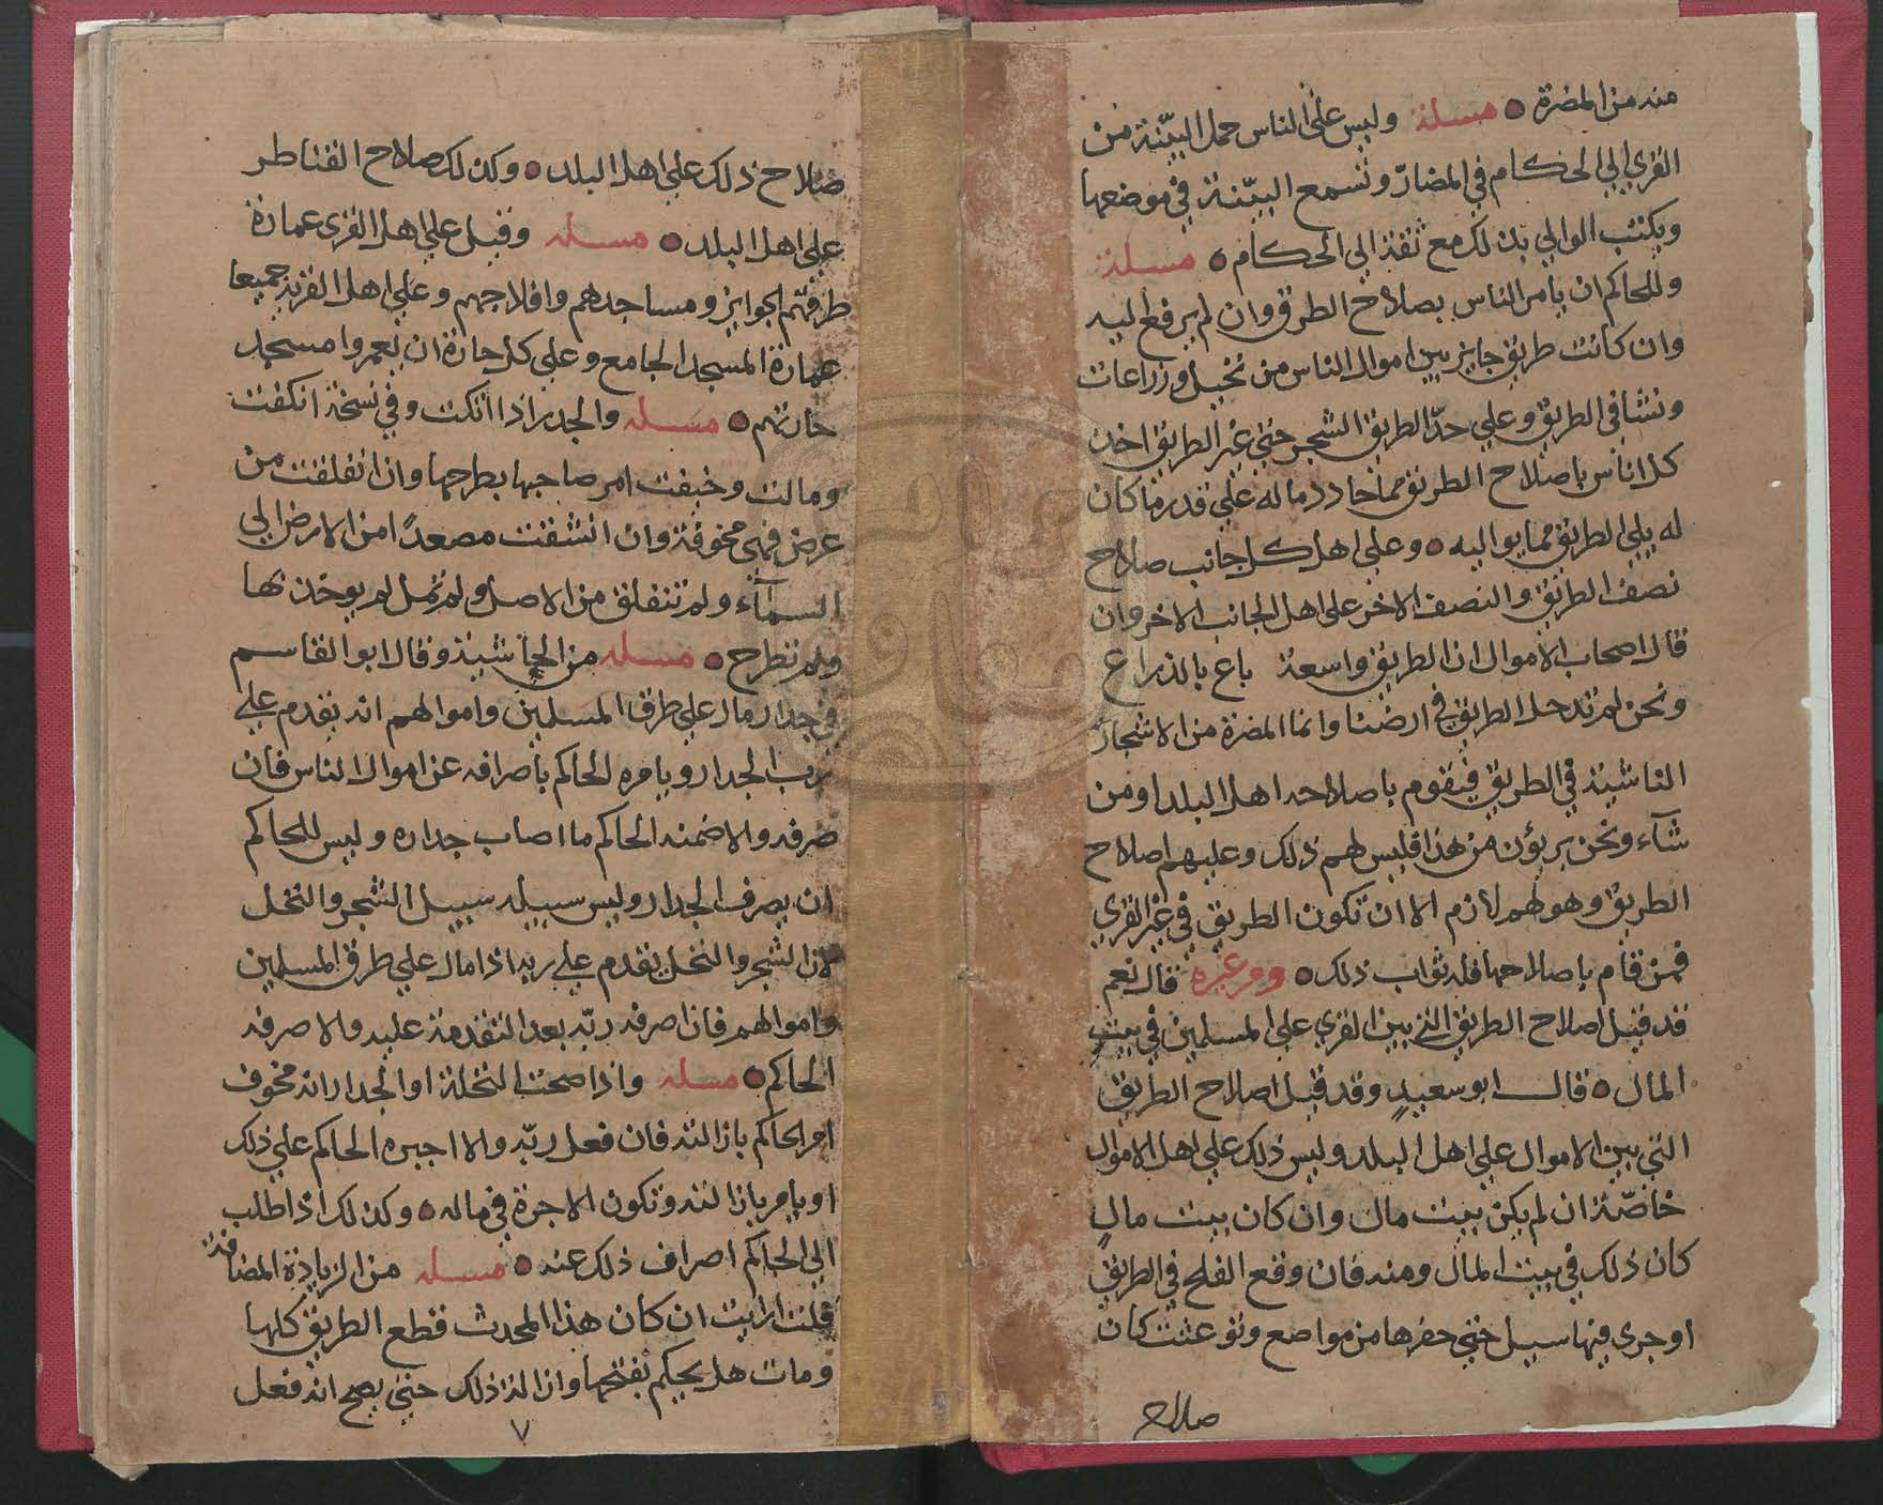 منه من المضرة ٥ مسئلة وليس على الناس حمل البيّنة من
القرى الي الحكام في المضارّ وتسمع البيّنة في موضعها
ويكتب الوالي بذلك مع ثقة الي الحكام ٥ مسئلة
وللحاكم ان يامر الناس بصلاح الطرق وان لم يرفع اليه
وان كانت طريق جايز بين اموال الناس من نخيل وزراعات
ونشا في الطريق وعلي حدّ الطريق الشجر حتى غير الطريق اخذ
كل اناس باصلاح الطريق مما حادد ماله علي قدر ما كان
له يلي الطريق مما يواليه ٥ وعلى اهل كل جانب صلاح
نصف الطريق والنصف الاخر على اهل الجانب الاخر وان
قال اصحاب الاموال ان الطريق واسعة باع بالذراع
ونحن لم ندخل الطريق في ارضنا وانما المضرة من الاشجار
الناشية في الطريق فيقوم باصلاحه اهل البلد او من
شآء ونحن بريؤن من هذا فليس لهم ذلك وعليهم اصلاح
الطريق وهو لهم لازم الا ان تكون الطريق في غير القرى
فمن قام باصلاحها فله ثواب ذلك ٥ ومن غيره قال نعم
قد قيل اصلاح الطريق التي بين القرى على المسلمين في بيت
المال ٥ قال ابو سعيدٍ وقد قيل اصلاح الطريق
التي بين الاموال علي اهل البلد وليس ذلك علي اهل الاموال
خاصّة ان لم يكن بيت مال وان كان بيت مالٍ
كان ذلك في بيت المال ومنه فان وقع الفلج في الطريق
او جرى فيها سيل حتى حفرها من مواضع وتوعثت كان
صلاح
صلاح ذلك علي اهل البلد ٥ وكذلك صلاح القناطر
علي اهل البلد ٥ مسئله وقيل علي اهل القرى عمارة
طرقهم الجوايز ومساجدهم وافلاجهم وعلي اهل القرية جميعا
عمارة المسجد الجامع وعلى كل حارة ان يعمروا مسجد
حارتهم ٥ مسئله والجدر اذا اتكت وفي نسخة انكفت
ومالت وخيفت امر صاحبها بطرحها واذا انفلقت من
عرض فهي مخوفة وان انشقت مصعدًا من الارض الي
السمآء ولم تنفلق من الاصل ولم تمل لم يوخذ بها
ولم تطرح ٥ مسئله من الحاشية وقال ابو القاسم
في جدار مال علي طرق المسلمين واموالهم انه يقدم علي
رب الجدار ويامره الحاكم باصرافه عن اموال الناس فان
صرفه والا ضمنه الحاكم ما اصاب جداره وليس للحاكم
ان يصرف الجدار وليس سبيله سبيل الشجر والنخل
لان الشجر والنخل يقدم علي ربه اذا مال علي طرق المسلمين
واموالهم فاذا صرفه ربّه بعد التقدمة عليه والا صرفه
الحاكم ٥ مسئله واذا صحت النخلة او الجدار انه مخوف
امر الحاكم بازالته فان فعل ربّه والا اجبره الحاكم علي ذلك
او يامر بازالته وتكون الاجرة في ماله ٥ وكذلك اذا طلب
الي الحاكم اصراف ذلك عنه ٥ مسئله من الزيادة المضافة
قلت ارايت ان كان هذا المحدث قطع الطريق كلها
ومات هل يحكم بفتحها وازالة ذلك حتى يصح انه فعل
٧